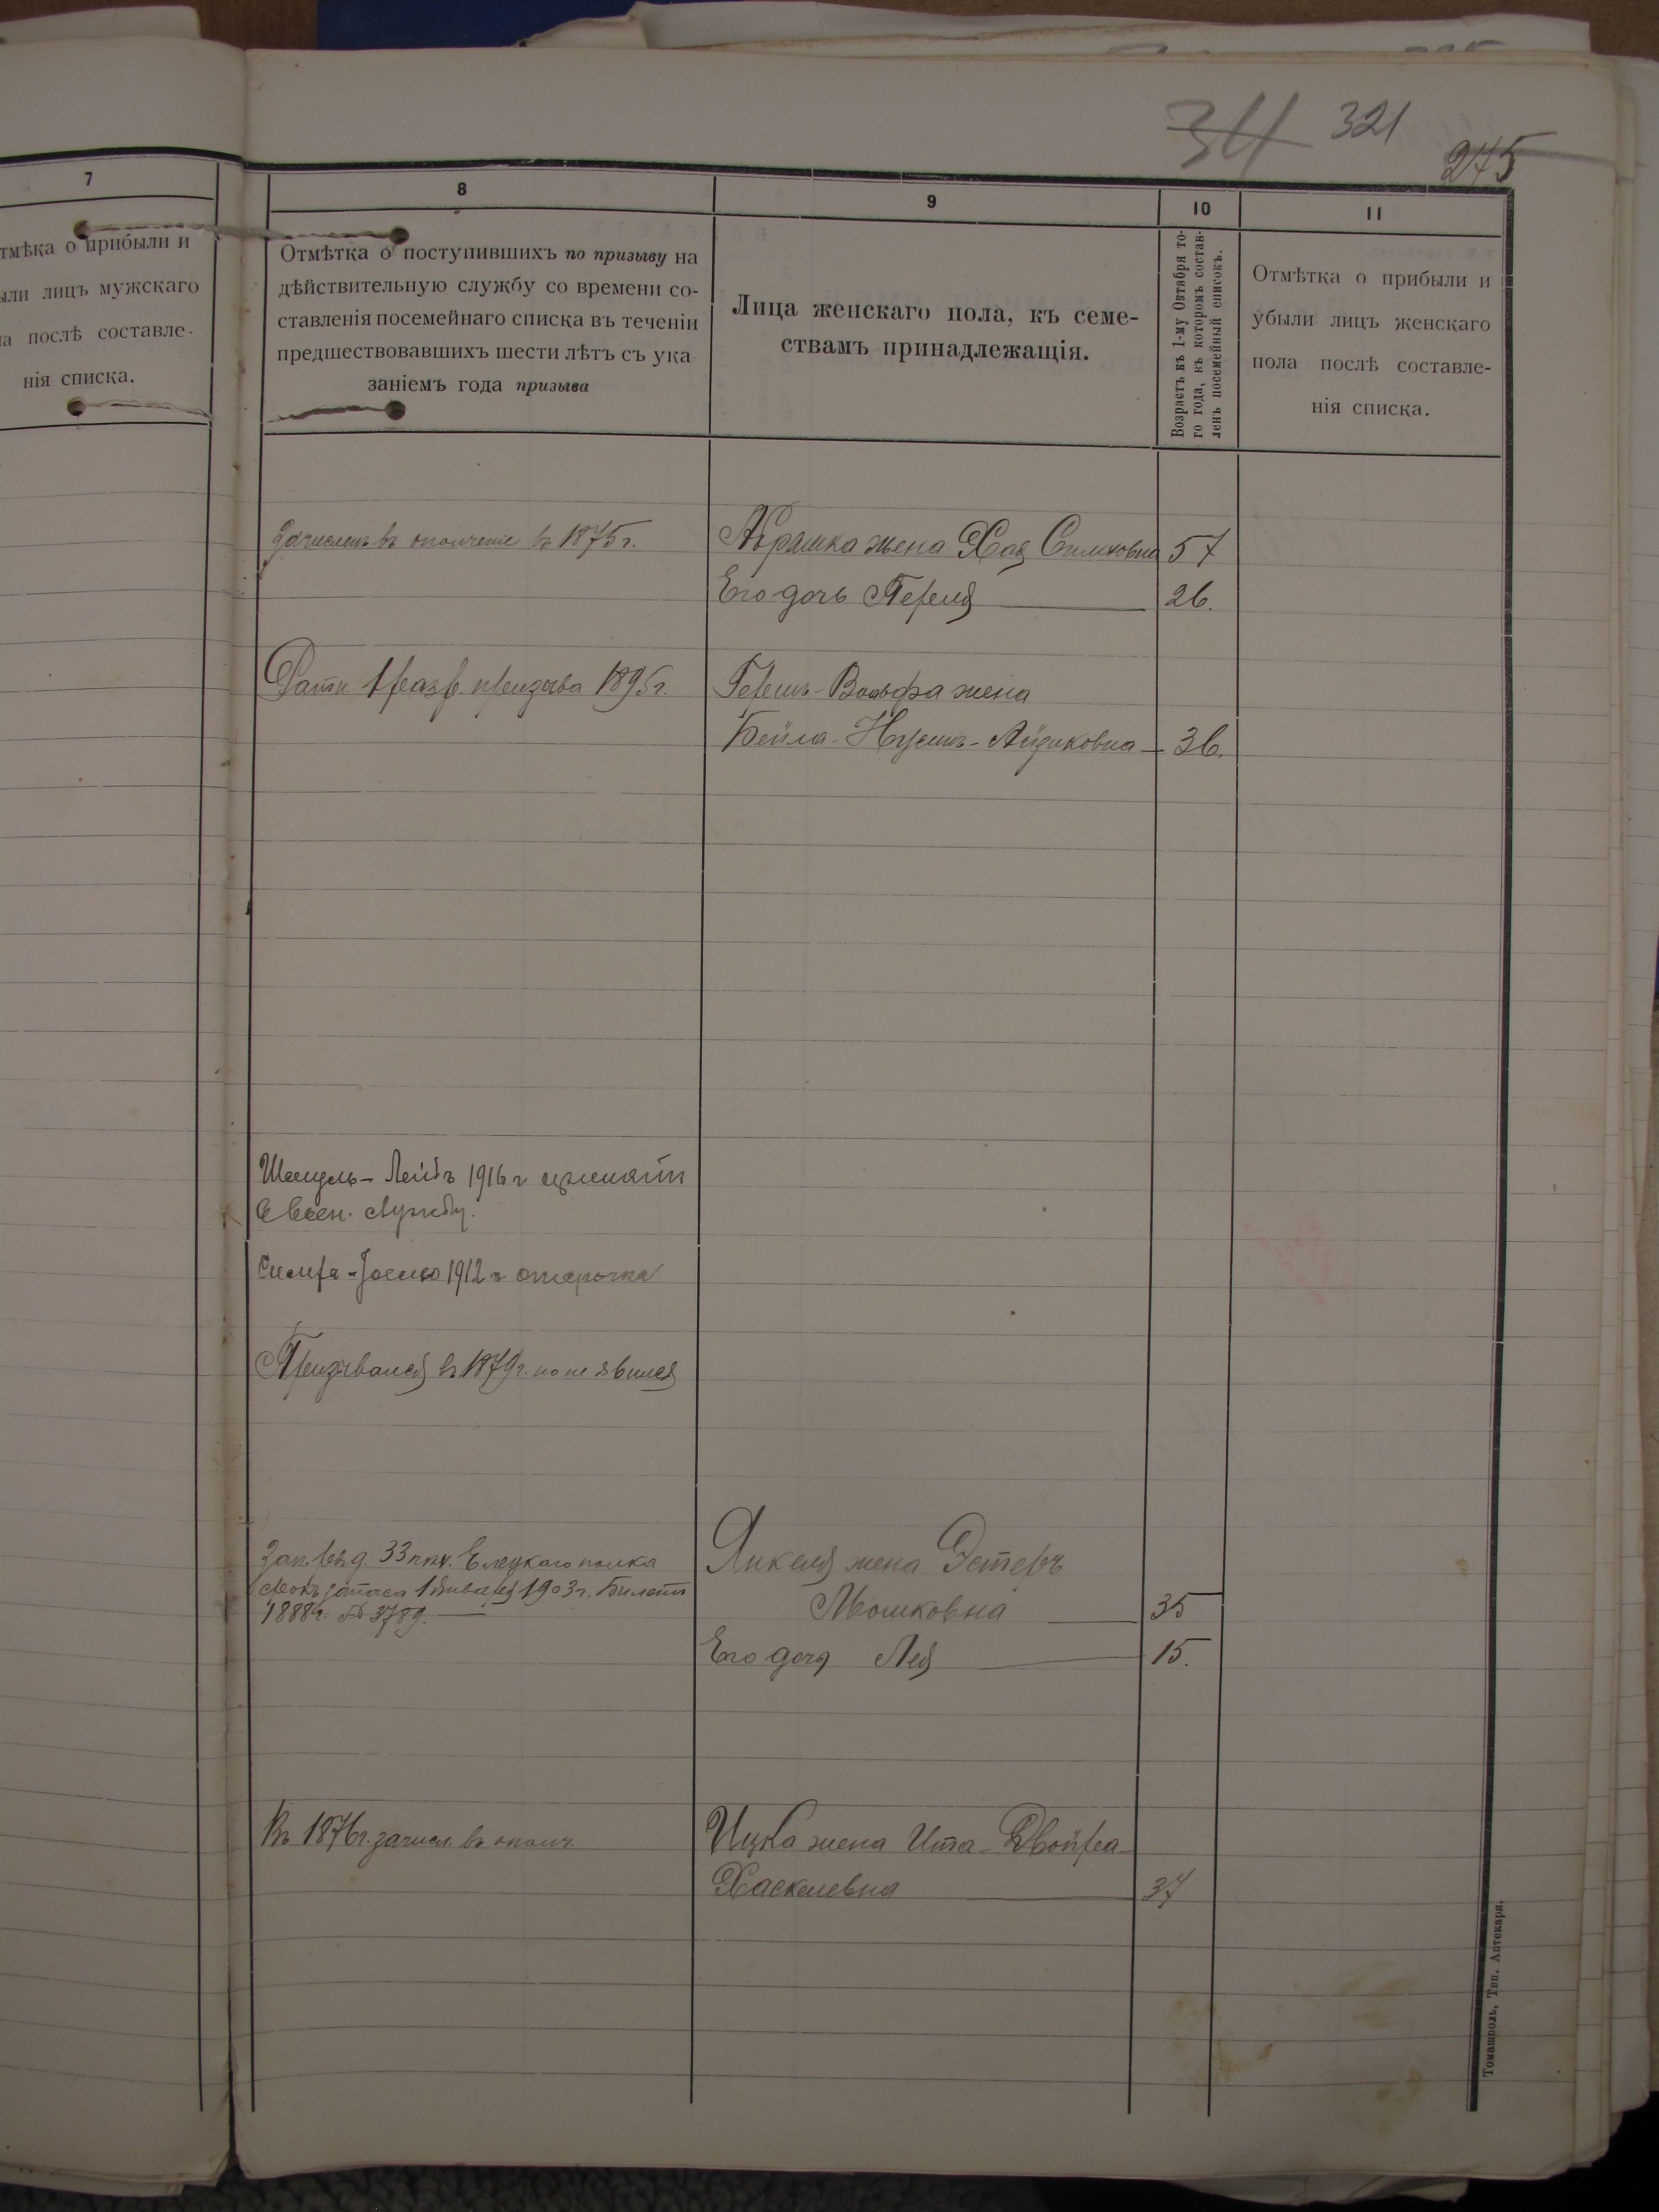 34 321
275
7
8
9
10
11
тмѣка о прибыли и
ыли лицъ мужскаго
ла послѣ составле-
нія списка.
Отмѣтка о поступившихъ по призыву на
дѣйствительную службу со времени со-
ставленія посемейнаго списка въ теченіи
предшествовавшихъ шести лѣтъ съ ука
заніемъ года призыва
Лица женскаго пола, къ семе-
ствамъ принадлежащія.
Возрастъ къ 1-му Октября то-
го года, къ которомъ состав-
ленъ посемейный списокъ.
Отмѣтка о прибыли и
убыли лицъ женскаго
пола послѣ составле-
нія списка.
Зачисленъ въ ополченіе въ 1875 г.
Абрашка жена Хая Симховна 57
Его дочь Перля 26.
Ратн. 1 разр. призыва 1895 г.
Гершъ-Вольфа жена
Бейла-Нусимъ-Айзиковна 36.
Шмуль-Лейбъ 1916 г. принятъ
в воен. службу.
1912 г. отсрочка
Призывался въ 1879 г. но не явился
Зап. ряд. 33 пѣх. Елецкаго полка
срокъ запаса 1 Января 1903 г. Билетъ
1888 г. № 3789.
Янкеля жена Эстеръ
Мошковна 35
Его дочь Лея 15.
Въ 1876 г. зачисл. въ ополч.
Ицка жена Ита-Двойра-
Хаскелевна 37
Томашполь, Тип. Аптекаря.